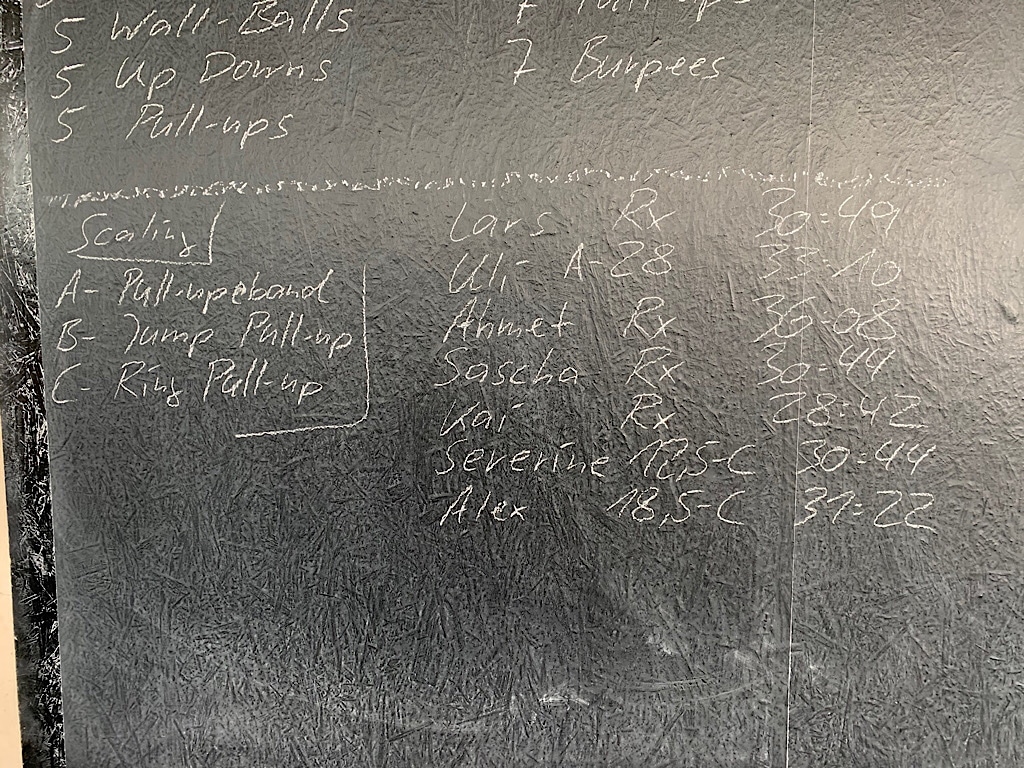 5 Wall-Balls
5 Up Downs
5 Pull-ups
7
7 Burpees
Scaling
A- Pull-up band
B- Jump Pull-up
C- Ring Pull-up
Lars Rx 30:49
Uli A-28 33:10
Ahmet Rx 36:08
Sascha Rx 30:44
Kai Rx 28:42
Severine 12,5-C 30:44
Alex 18,5-C 31:22